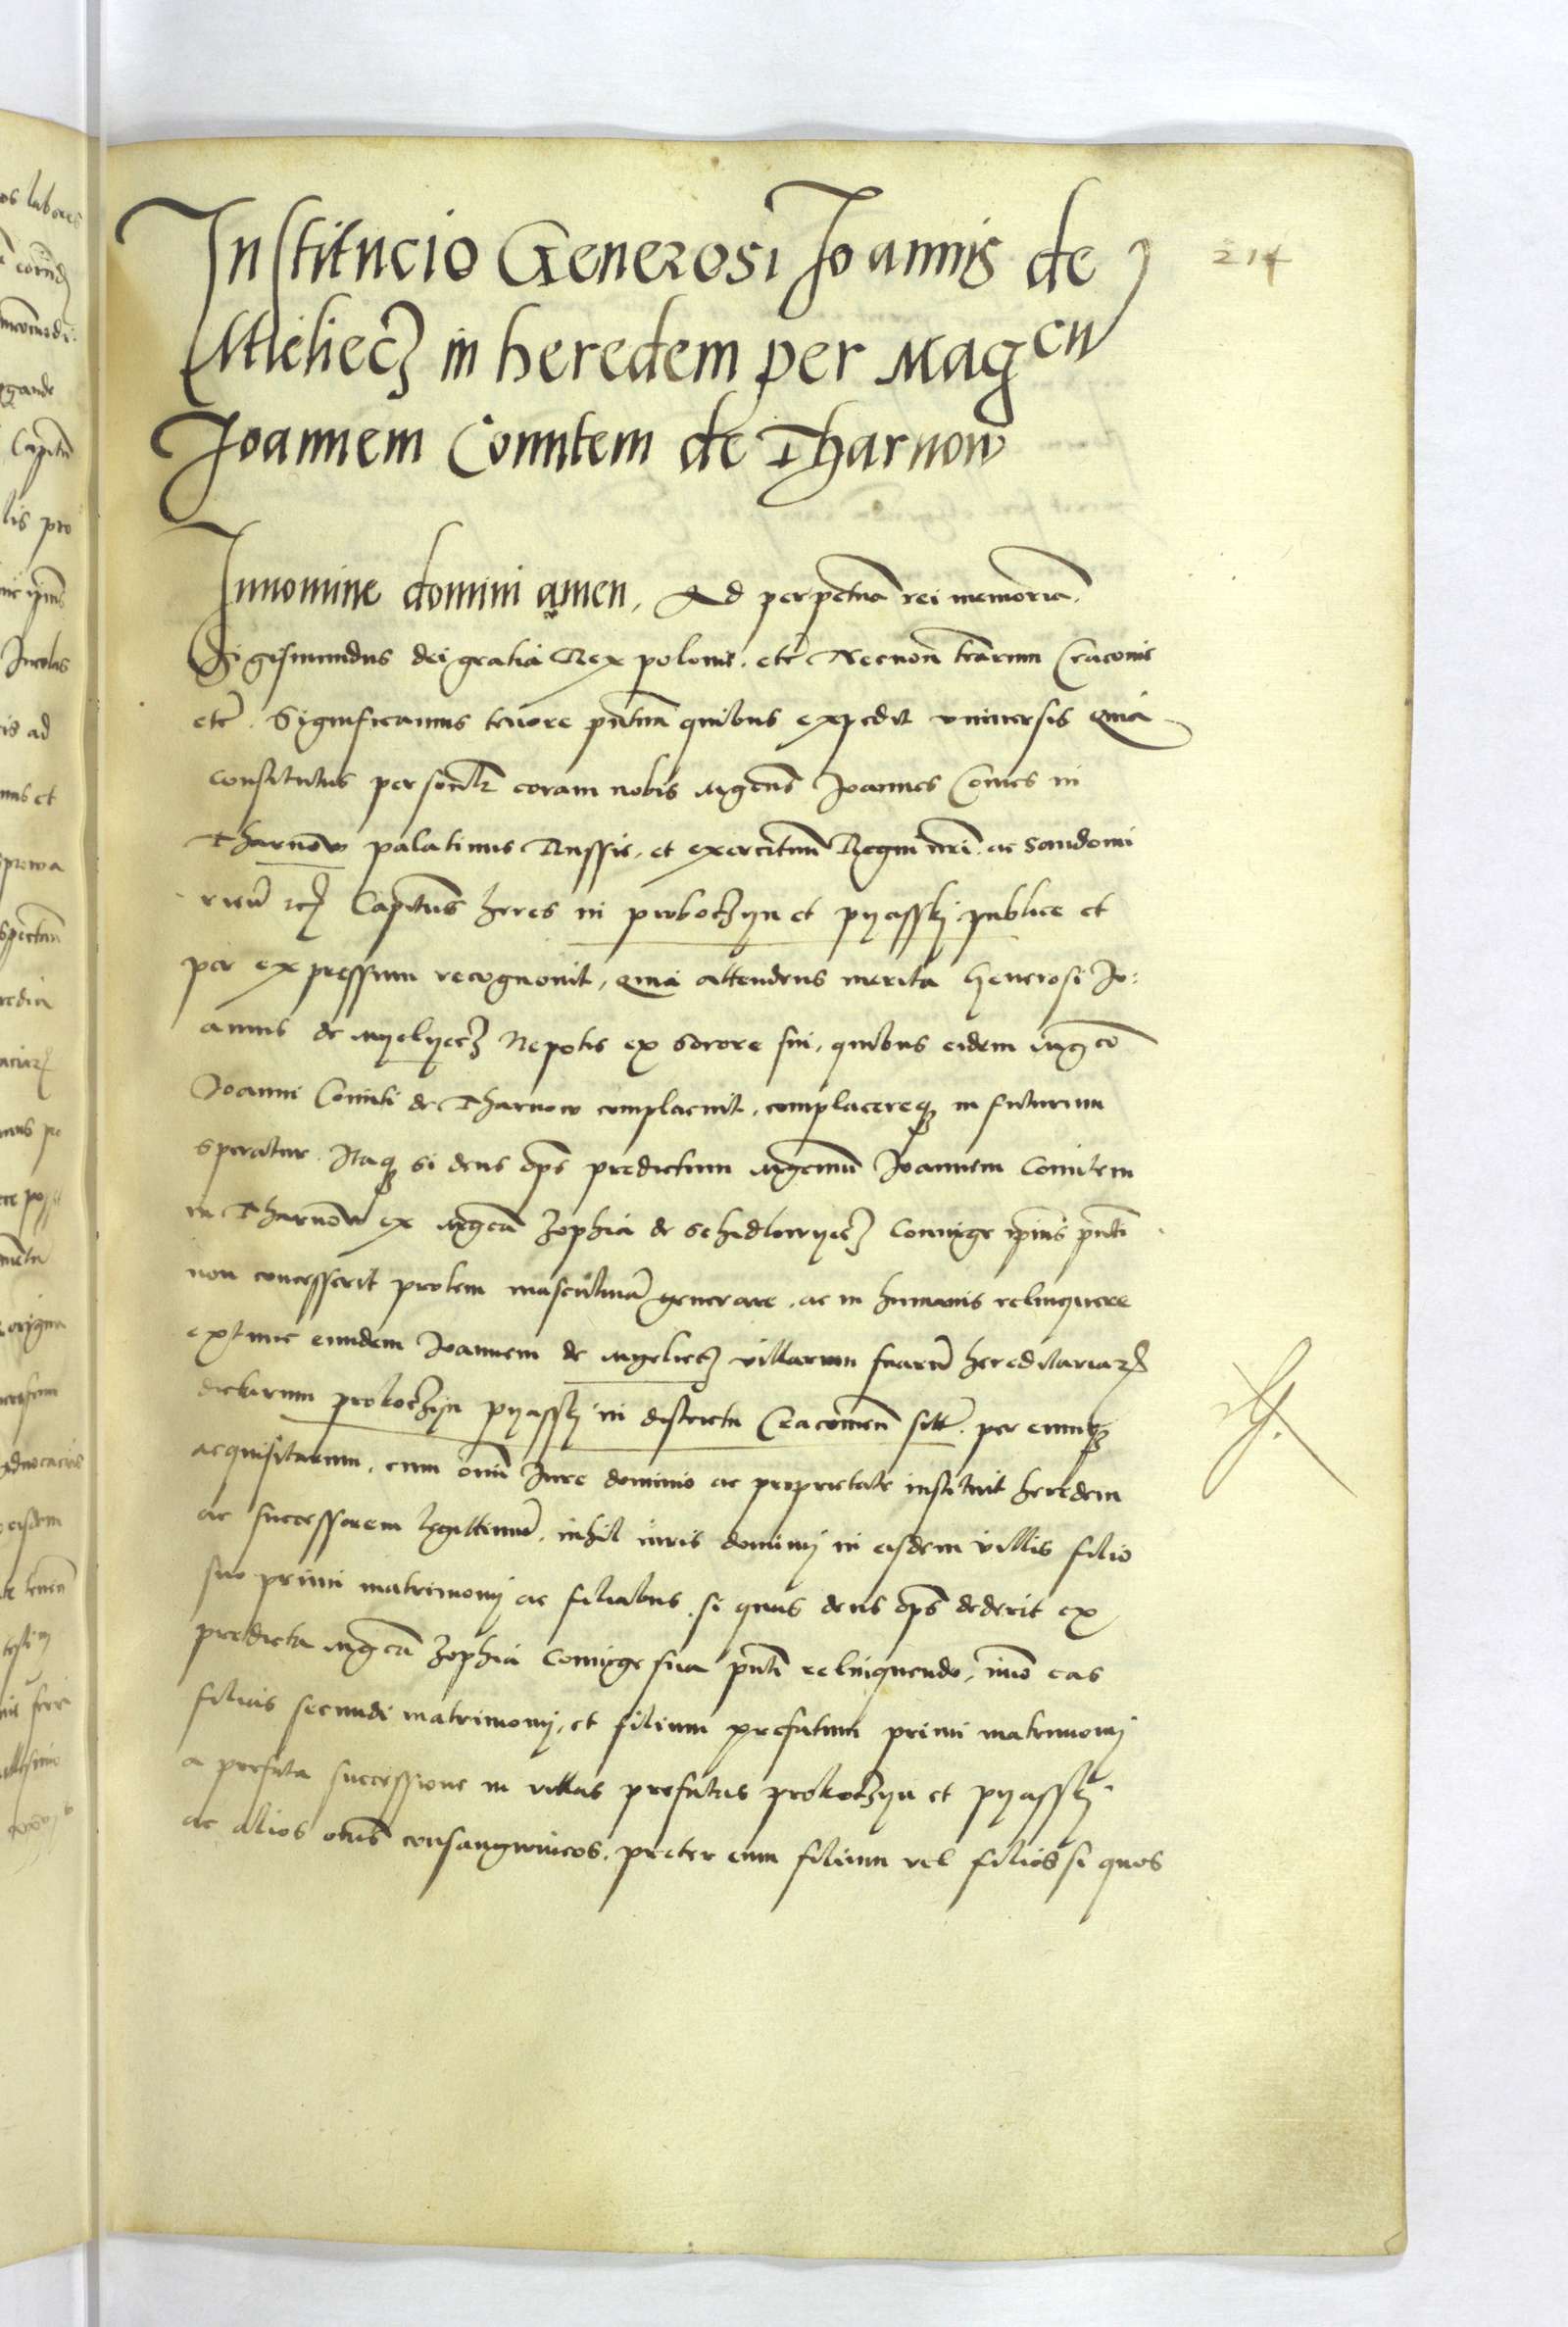 214
Institucio Generosi Joannis de
Mieliecz in heredem per Mag^cu
Joannem Comitem de Tharnow
Innomine domini amen, Ad perpetuā rei memoriā.
Sigismundus dei gratia Rex polonie. etc̄ Necnon terarum Cracovie
etc̄. Significamus tenore pn̄tiū quibus expedit vniuersis Quia
constitutus personlr coram nobis Mgcūs Joannes Comes in
Tharnow palatinus Russie, et exercituū Regni nr̄i. ac Sandomi
rien̄ Capitaneus heres in proboczyn et pyassky publice et
per expressum recognouit, Quia attendens merita Generosi Jo:
annis de Myelyecz Nepotis ex Sorore sui, quibus eidem Mgco
Joanni Comiti de Tharnow complacuit, complacereqz in futurum
speratur. Itaqz si deus ops̄ predictum Mgcum̄ Joannem Comitem
in Tharnow ex Mgcā Zophia de Schidlowyecz Coniuge ipsius pn̄ti
non concesserit prolem masculinā generare, ac in humanis relinquere
extunc eundem Joannem de Myeliecz villarum suarū hereditariarꝫ
dictarum prokoczyn pyassky in districtu Cracouien̄ sitt. per eumqz
acquisitarum, cum omī Jure dominio ac proprietate instituit heredem
ac successorem legittimū. nihil iuris dominij in eisdem villis filio
suo primi matrimonij ac filiabus, si quas deus ops̄ dederit ex
predicta Mgcā Zophia Coniuge sua pn̄ti relinquendo, imō eas
filias secundi matrimonij, et filium prefatum primi matrimonij
a prefata successione in villas prefatas prokoczyn et pyassky
ac alios om̄s consangwineos. preter eum filium vel filios si quos